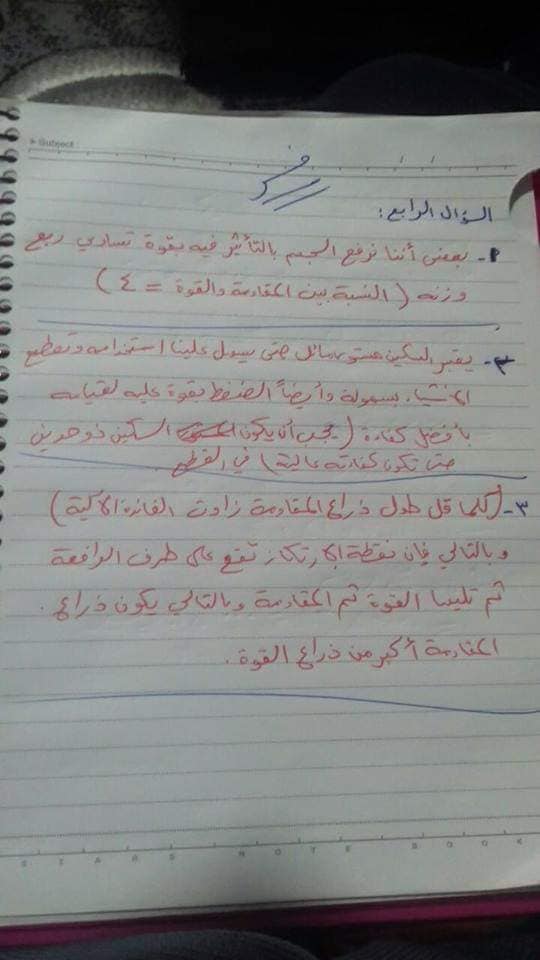 Subject
السؤال الرابع :
١- بمعنى أننا نرفع الجسم بالتأثير فيه بقوة تساوي ربع
وزنه ( النسبة بين المقاومة والقوة = ٤ )
٢- يعتبر السكين مستو مائل حتى يسهل علينا استخدامه وتقطيع
الأشياء بسهولة وأيضاً الضغط بقوة عليه لقيامه
بأفضل كفاءة ( يجب أن يكون السكين ذو حدين
حتى تكون كفاءته عالية ) في القطع
٣- ( كلما قل طول ذراع المقاومة زادت الفائدة الآلية )
وبالتالي فإن نقطة الارتكاز تقع على طرف الرافعة
ثم تليها القوة ثم المقاومة وبالتالي يكون ذراع
المقاومة أكبر من ذراع القوة .